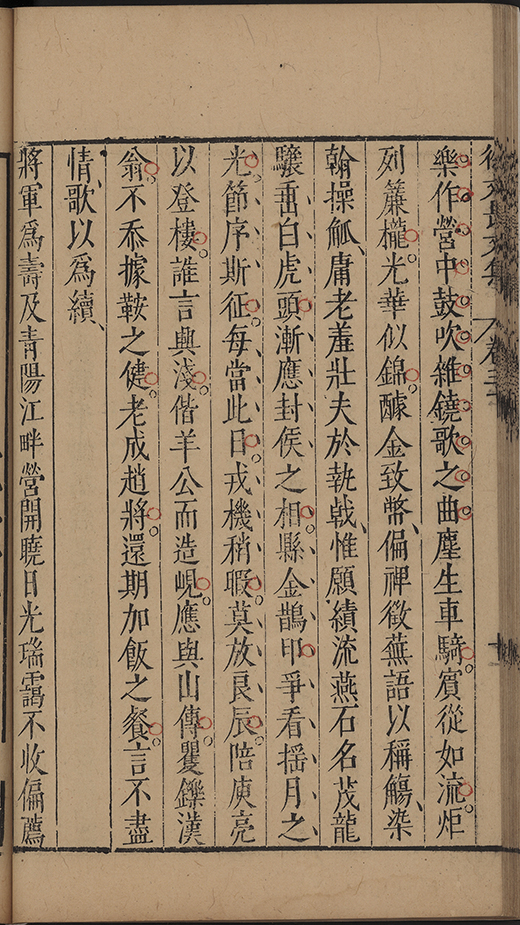 徐文長文集 卷三
樂作營中鼓吹雜鐃歌之曲塵生車騎賓從如流炬
列簾櫳光華似錦醵金致幣偏裨徵蕪語以稱觴染
翰操觚庸老羞壯夫於執戟惟願績流燕石名茂龍
驤畨白虎頭漸應封侯之相縣金鵲印爭看揺月之
光節序斯征每當此日戎機稍暇莫放良辰陪庾亮
以登樓誰言興淺偕羊公而造峴應與山傳矍鑠漢
翁不忝據鞍之健老成趙將還期加飯之餐言不盡
情歌以爲續
將軍爲壽及青陽江畔營開曉日光瑤靄不收偏薦